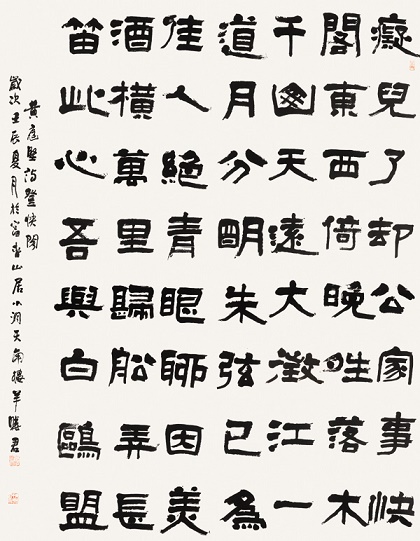 癡兒了却公家事快
閣東西倚晚晴落木
千山天遠大澂江一
道月分明朱弦已為
佳人絕青眼聊因美
酒橫萬里歸舩弄長
笛此心吾與白鷗盟
黃庭堅詩登快閣
歲次壬辰夏月於富春山居小洞天角樓羊曉君